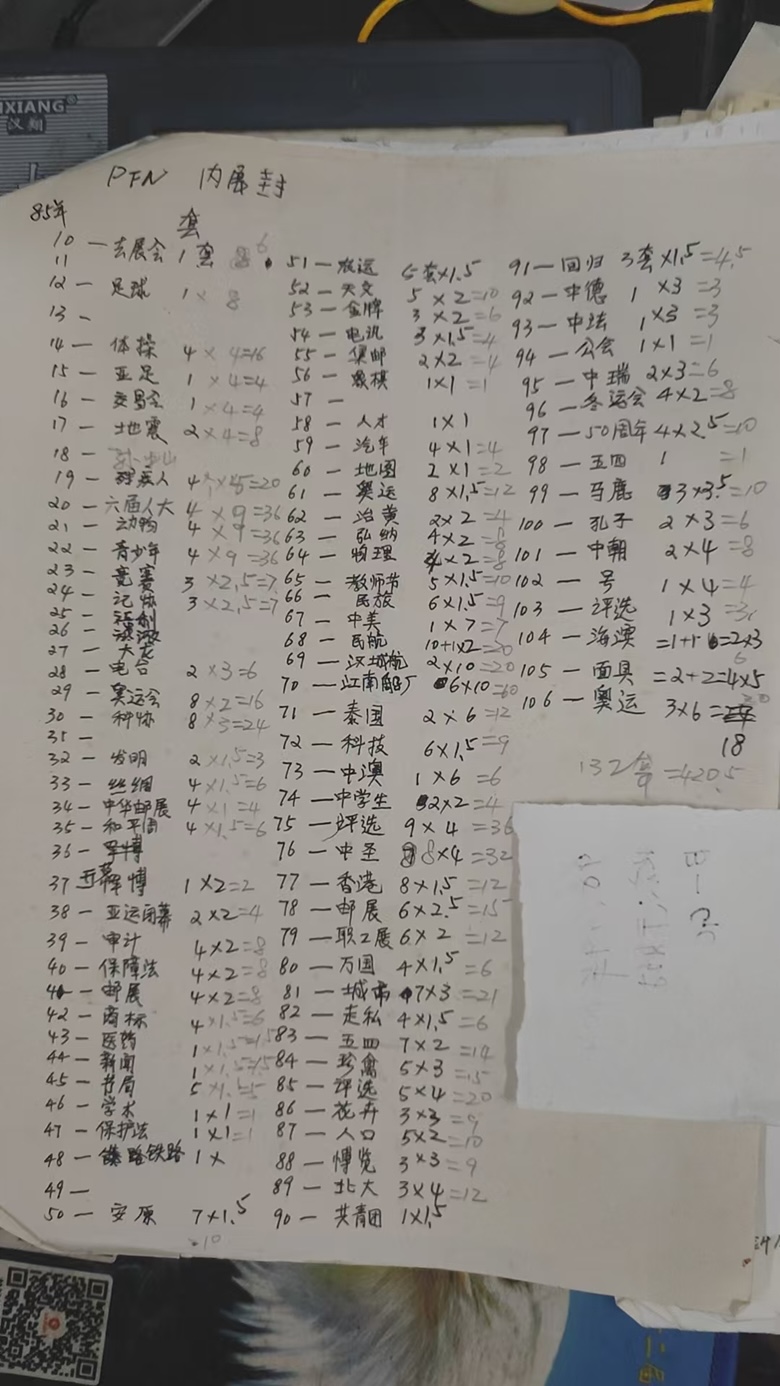 IXIANG®
汉翔
PFN 内展封
85年
套
10 — 去展会 1套 8
11
12 — 足球 1 × 8
13 —
14 — 体操 4 × 4=16
15 — 亚足 1 × 4=4
16 — 交易会 1 × 4=4
17 — 地震 2 × 4=8
18 —
19 — 残疾人 =20
20 — 六届人大 4 × 9=36
21 — 动物 4 × 9=36
22 — 青少年 4 × 9=36
23 — 竞赛 3 × 2.5=7
24 — 记协 3 × 2.5=7
25 —
26 —
27 — 大龙
28 — 电台 2 × 3=6
29 — 奥运会 8 × 2=16
30 — 科协 8 × 3=24
31 —
32 — 发明 2 × 1.5=3
33 — 丝绸 4 × 1.5=6
34 — 中华邮展 4 × 1=4
35 — 和平周 4 × 1.5=6
36 — 军博
37 开幕 博 1 × 2=2
38 — 亚运闭幕 2 × 2=4
39 — 审计 4 × 2=8
40 — 保障法 4 × 2=8
41 — 邮展 4 × 2=8
42 — 商标 4 × 1.5=6
43 — 医药 1 × 1.5=1.5
44 — 新闻 1 × 1.5=1.5
45 — 书局 5 × 1.5
46 — 学术 1 × 1=1
47 — 保护法 1 × 1=1
48 — 铁路 1 ×
49 —
50 — 安原 7 × 1.5
=10
51 — 农运 5套×1.5
52 — 天文 5 × 2=10
53 — 金牌 3 × 2=6
54 — 电汛 3 × 1.5=4
55 — 集邮 2 × 2=4
56 — 象棋 1 × 1=1
57 —
58 — 人才 1 × 1
59 — 汽车 4 × 1=4
60 — 地图 2 × 1=2
61 — 奥运 8 × 1.5=12
62 — 治黄 2 × 2=4
63 — 弘纳 4 × 2=8
64 — 物理 4 × 2=8
65 — 教师节 5 × 1.5=10
66 — 民族 6 × 1.5=9
67 — 中美 1 × 7=7
68 — 民航 10+1×2=20
69 — 汉城航 2 × 10=20
70 — 江南船厂 6 × 10=60
71 — 泰国 2 × 6=12
72 — 科技 6 × 1.5=9
73 — 中澳 1 × 6=6
74 — 中学生 2 × 2=4
75 — 评选 9 × 4=36
76 — 中圣 8 × 4=32
77 — 香港 8 × 1.5=12
78 — 邮展 6 × 2.5=15
79 — 职工展 6 × 2=12
80 — 万国 4 × 1.5=6
81 — 城市 7 × 3=21
82 — 走私 4 × 1.5=6
83 — 五四 7 × 2=14
84 — 珍禽 5 × 3=15
85 — 评选 5 × 4=20
86 — 花卉 3 × 3=9
87 — 人口 5 × 2=10
88 — 博览 3 × 3=9
89 — 北大 3 × 4=12
90 — 共青团 1 × 1.5
91 — 回归 3套×1.5=4.5
92 — 中德 1 × 3=3
93 — 中法 1 × 3=3
94 — 公会 1 × 1=1
95 — 中瑞 2 × 3=6
96 — 冬运会 4 × 2=8
97 — 50周年 4 × 2.5=10
98 — 五四 1 =1
99 — 马鹿 3 × 3.5=10
100 — 孔子 2 × 3=6
101 — 中朝 2 × 4=8
102 — 号 1 × 4=4
103 — 评选 1 × 3=3
104 — 海澳 =1+1=2×3
6
105 — 面具 =2+2=4×5
20
106 — 奥运 3 × 6=
18
132套=420.5